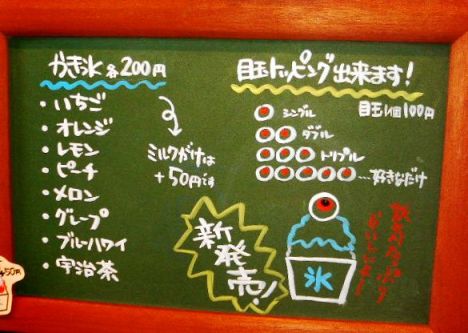 かき氷 各200円
・いちご
・オレンジ
・レモン
・ピーチ
・メロン
・グレープ
・ブルーハワイ
・宇治茶
ミルクがけは
+50円です
目玉トッピング出来ます!
目玉1個100円
シングル
ダブル
トリプル
…好きなだけ
新発売!
氷
50円